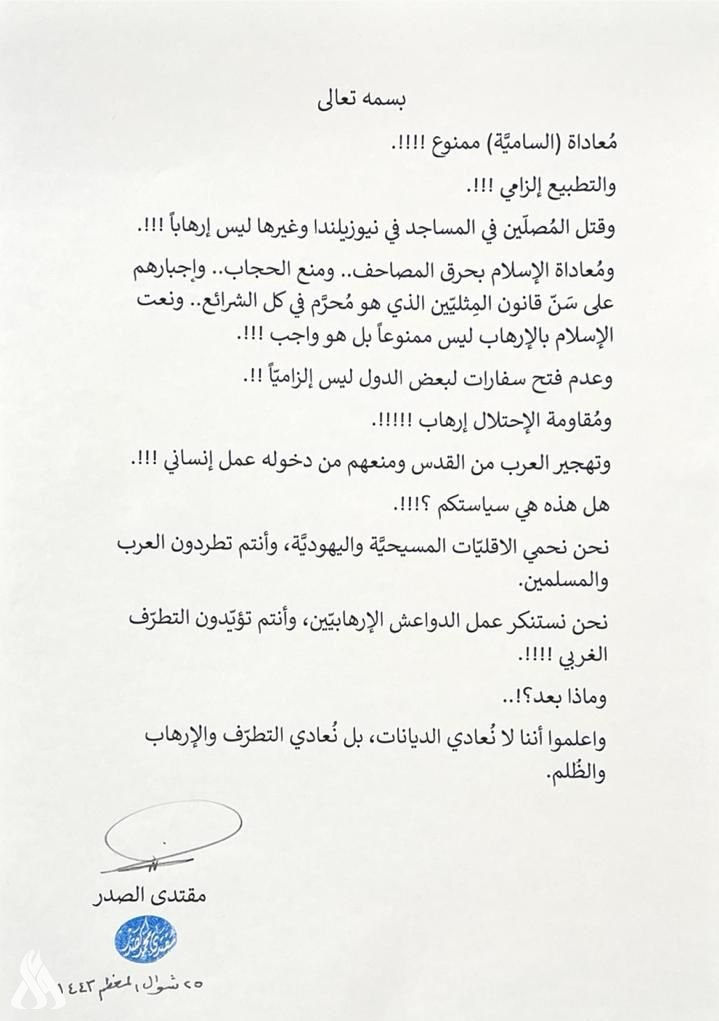 بسمه تعالى
مُعاداة (الساميَّة) ممنوع !!!!.
والتطبيع إلزامي !!!.
وقتل المُصلَين في المساجد في نيوزيلندا وغيرها ليس إرهاباً !!!.
ومُعاداة الإسلام بحرق المصاحف.. ومنع الحجاب.. وإجبارهم
على سَنّ قانون المِثليّين الذي هو مُحرَّم في كل الشرائع.. ونعت
الإسلام بالإرهاب ليس ممنوعاً بل هو واجب !!!.
وعدم فتح سفارات لبعض الدول ليس إلزاميّاً !!.
ومُقاومة الإحتلال إرهاب !!!!!.
وتهجير العرب من القدس ومنعهم من دخوله عمل إنساني !!!.
هل هذه هي سياستكم ؟!!!.
نحن نحمي الاقليّات المسيحيَّة واليهوديَّة، وأنتم تطردون العرب
والمسلمين.
نحن نستنكر عمل الدواعش الإرهابيّين، وأنتم تؤيّدون التطرّف
الغربي !!!!.
وماذا بعد؟!..
واعلموا أننا لا نُعادي الديانات، بل نُعادي التطرّف والإرهاب
والظُلم.
مقتدى الصدر
٢٥ شوال المعظم ١٤٤٣